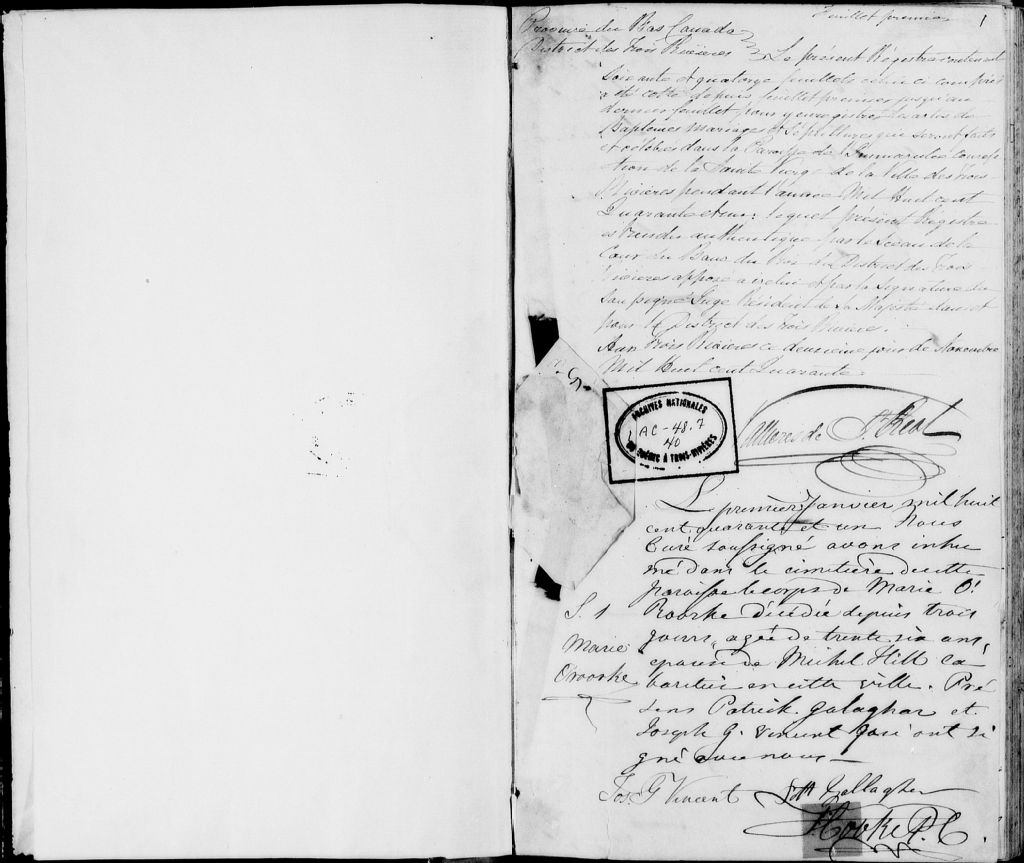 Feuillet premier 1
Province du Bas Canada
District des Trois Rivières } Le présent Régistre contenant
Soixante et quatorze feuillets celui ci compris
a été coté depuis feuillet premier jusqu'au
dernier feuillet pour y enregistrer les actes de
Baptêmes Mariages et Sépultures qui seront faits
et célébrés dans la Paroisse de l'Immaculée Concep
tion de la Sainte Vierge de la Ville des Trois
Rivières pendant l'année Mil Huit cent
Quarante et un; lequel présent Régistre
est rendu authentique par le Sceau de la
Cour du Banc du Roi du District des Trois
Rivières apposé a icelui et par la Signature du
Soussigné Juge Résident de Sa Majesté dans et
pour le District des Trois Rivières.
Aux Trois Rivières ce deuxième jour de Novembre
Mil Huit cent Quarante.
Vallieres de St. Real
ARCHIVES NATIONALES
AC-48.7
40
DU QUÉBEC À TROIS-RIVIÈRES
L premier Janvier mil huit
cent quarante et un Nous
Curé soussigné avons inhu
mé dans le cimetière de cette
paroisse le corps de Marie O'
S. 1 Roorke décédée depuis trois
jours, agée de trente six ans,
Marie épouse de Michel Hill ca-
Oroorke baretier en cette ville. Pré
sens Patrick Galaghar et
Joseph G. Vincent qui ont si
gné avec nous —
Jos. G Vincent Gallagher
Cooke P. C